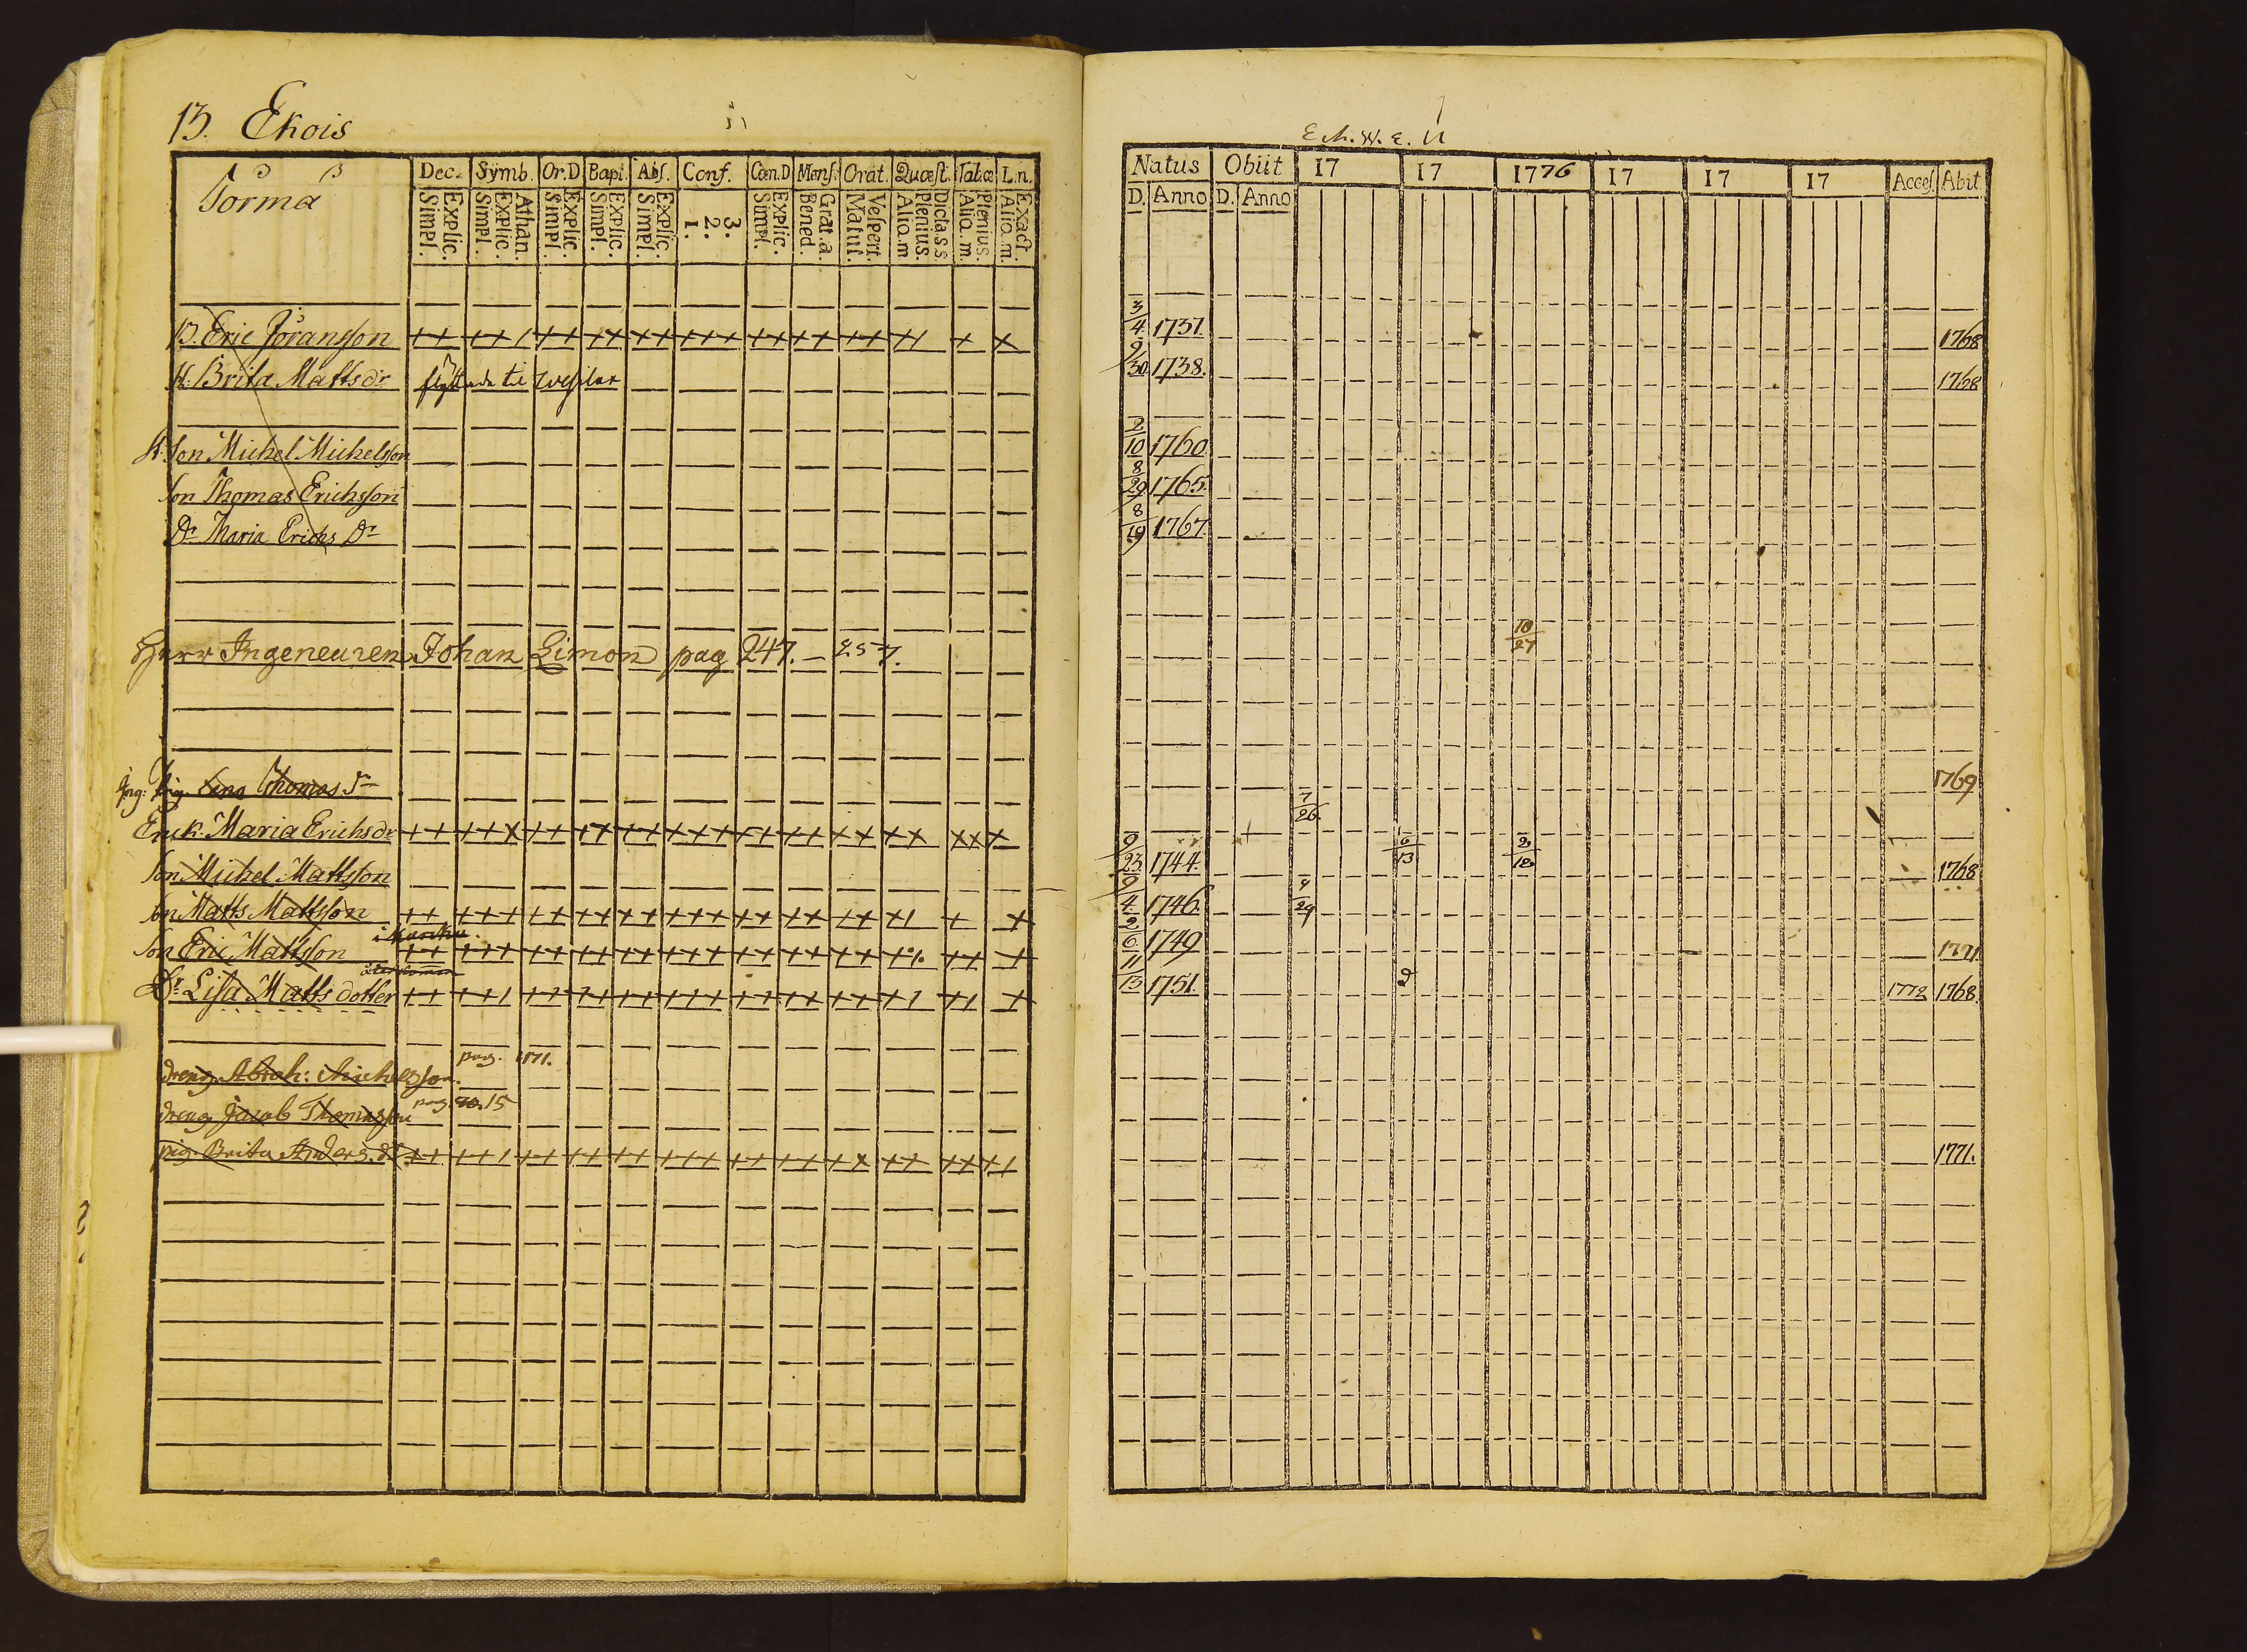 13. Ekois
Torma
Dec. Symb. Or.D Bapt. Abſ. Conf. Cœn.D Menſ. Orat. Quæſt. Tab.œ L.n.
Explic. Simpl. Athan. Explic. Simpl. Explic. Simpl. Explic. Simpl. Explic. Simpl. 3. 2. 1. Explic. Simpl. Grat.a. Bened. Veſpert. Matut. Dicta.s.s Plenius. Aliq.m Plenius. Aliq.m. Exact. Aliq.m.
B. Eric Jöransson
H. Brita Matts dr flyttade til
H: Son Michel Michelsson
Son Thomas Erichsson
Dr Maria Erichs Dr
Herr Ingeneuren Johan Limon pag 247. – 257.
Thomas dr
Enck. Maria Erichs dr
Son Michel Mattsson
Son Matts Mattsson
Son Eric Mattsson
Dr Lisa Matts dotter
pag. 171.
dreng Abrah: Michelsson.
pag. 15
dreng Jacob Thomasson
pig. Brita Anders. dr
Natus Obiit 17 17 1776 17 17 17 Acceſ. Abit.
D. Anno D. Anno
3/4 1737. 1768
9/30 1738. 1768
2/10 1760
8/29 1765
8/19 1767
10/27
1769
7/26.
9/23 1744. 6/13 2/18 1768
9/4. 1746. 4/29
2/6 1749 1771
11/13 1751. 1772 1768.
1771.